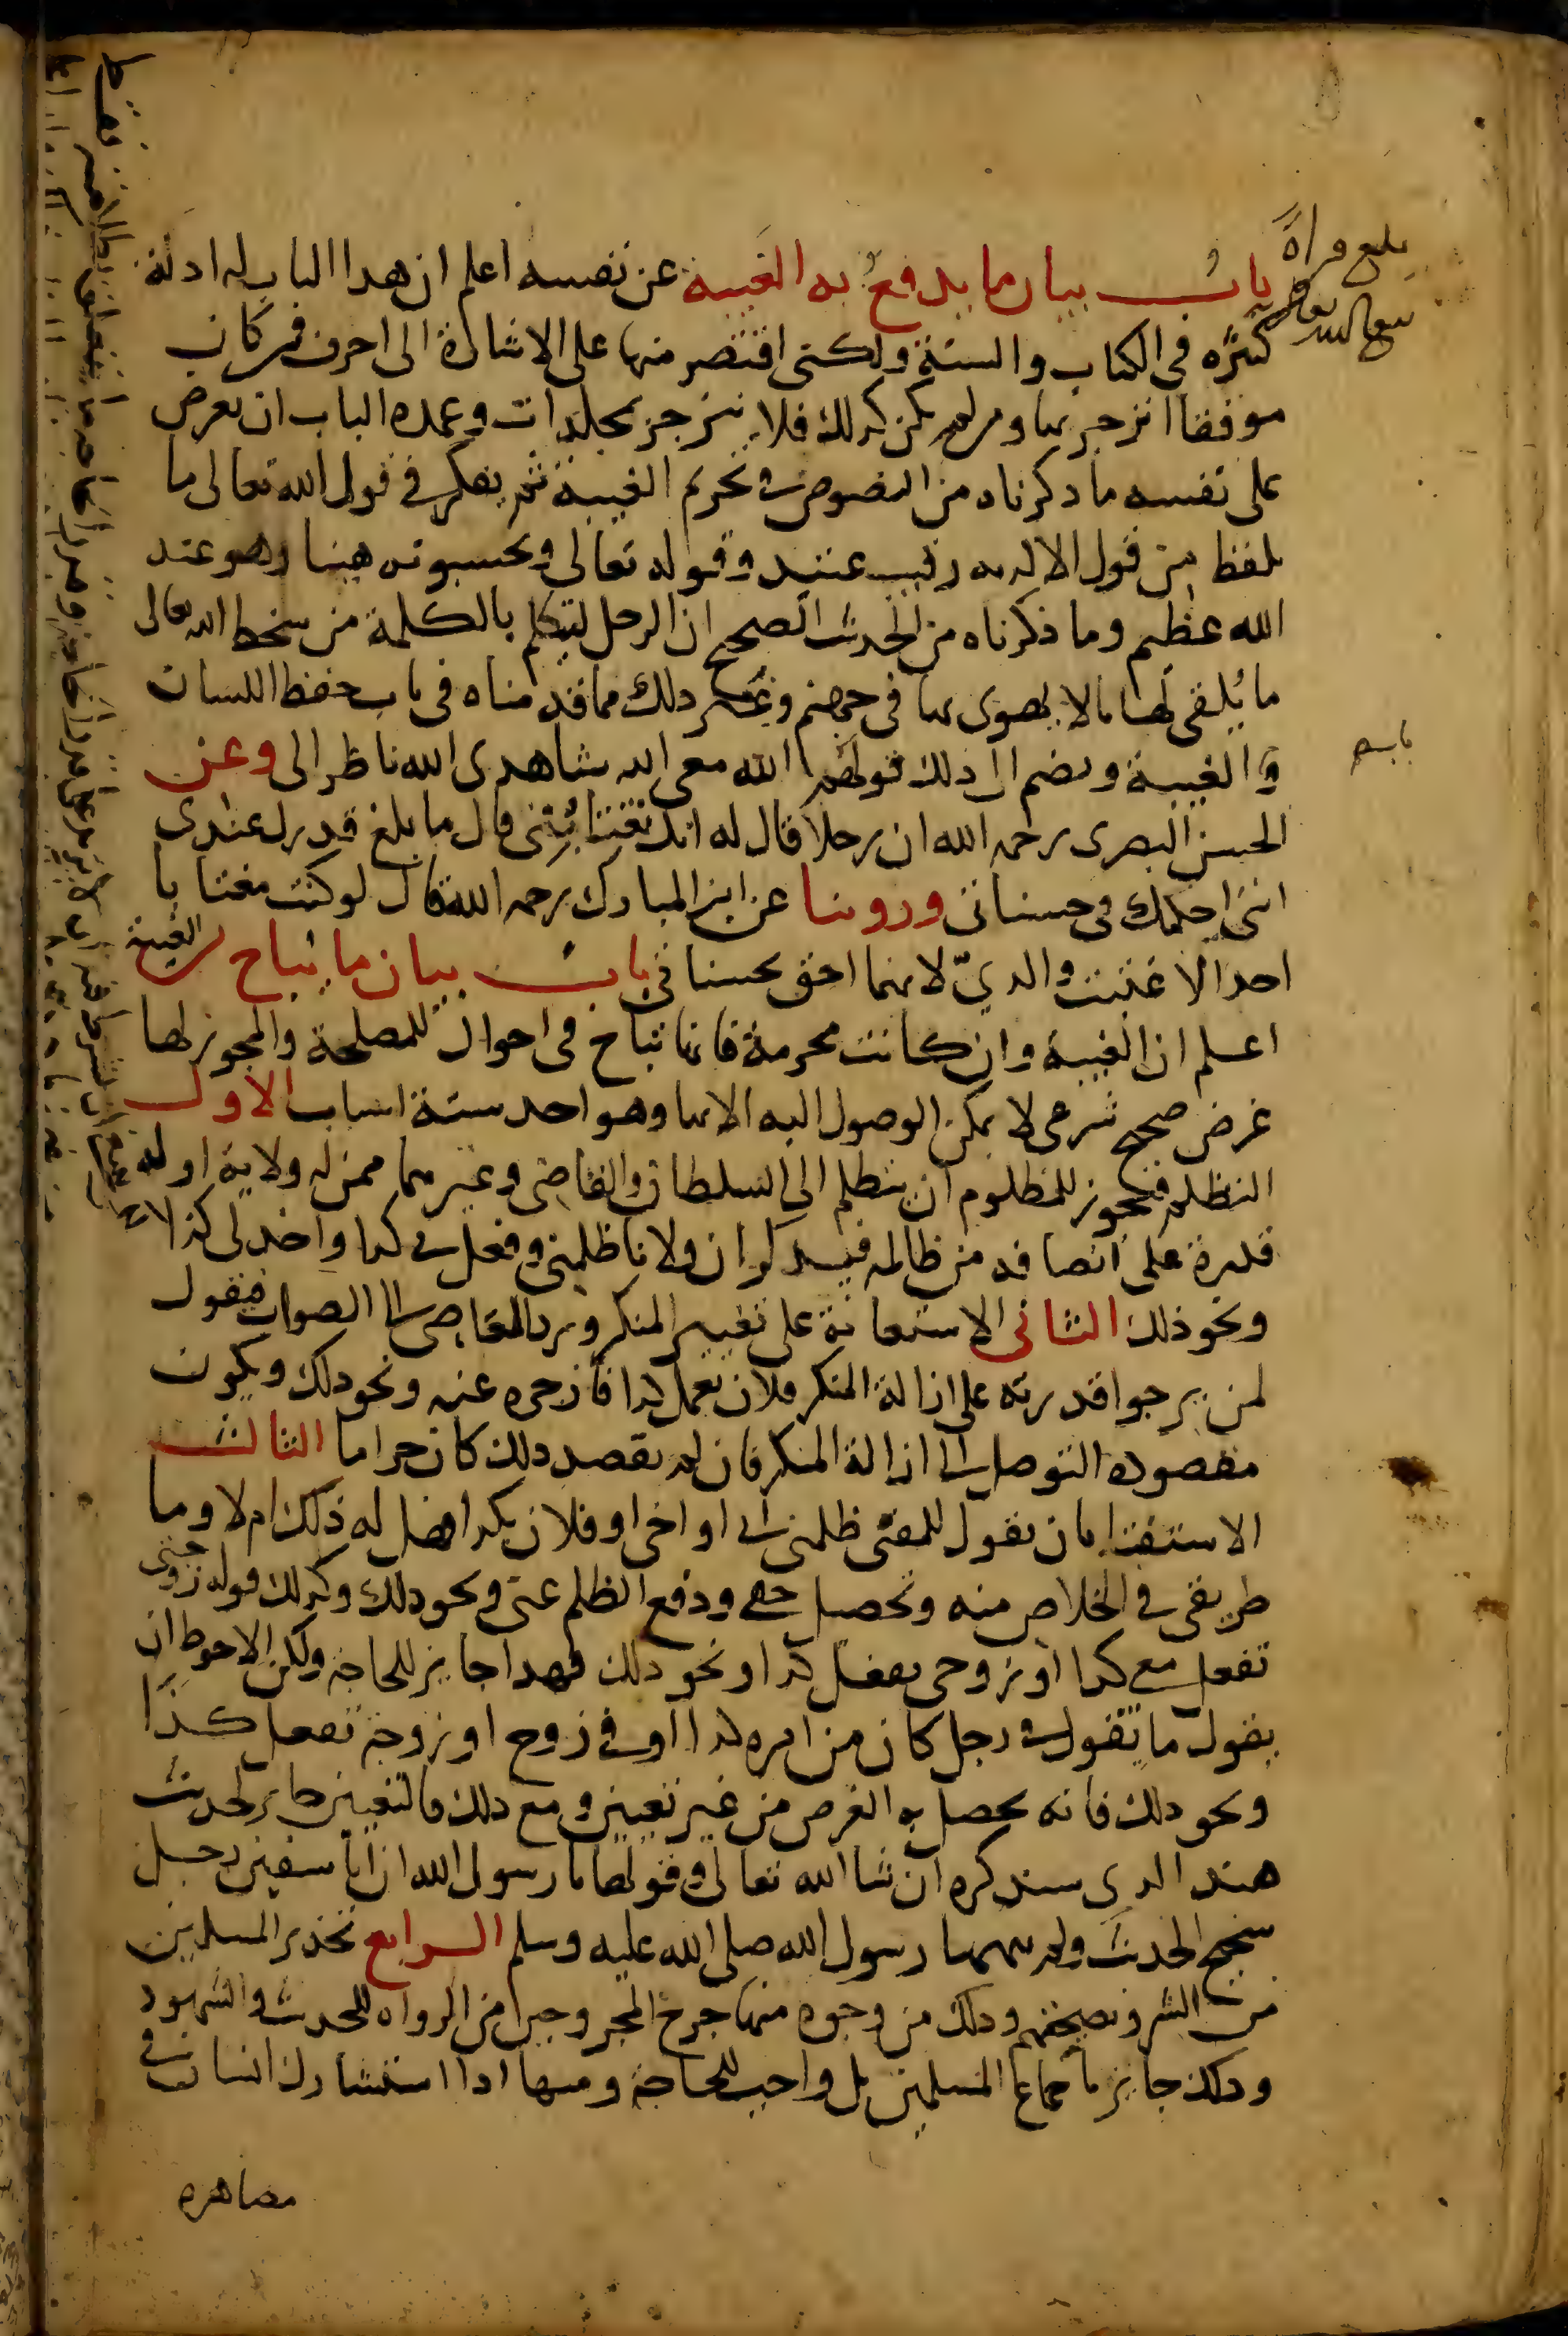 بلغ قراءة
باب بيان ما يدفع به الغيبة عن نفسه اعلم ان هذا الباب له ادلة
كثيرة في الكتاب والسنة ولكني اقتصر منها على الاشارة الى احرف فمن كان
موفقا انزجر بها ومن لم يكن كذلك فلا ينزجر بمجلدات وعمدة الباب ان يعرض
على نفسه ما ذكرناه من النصوص في تحريم الغيبة ثم يفكر في قول الله تعالى ما
يلفظ من قول الا لديه رقيب عتيد وقوله تعالى وتحسبونه هينا وهو عند
الله عظيم وما ذكرناه من الحديث الصحيح ان الرجل ليتكلم بالكلمة من سخط الله تعالى
ما يُلقي لها بالا يهوي بها في جهنم وغير ذلك مما قدمناه في باب حفظ اللسان
والغيبة ويضم الى ذلك قولهم الله معي الله شاهدي الله ناظر الي وعن
الحسن البصري رحمه الله ان رجلا قال له انك تغتابُني قال ما بلغ قدرك عندي
اني احكمك في حسناتي وروينا عن ابن المبارك رحمه الله قال لو كنت مغتابا
احدا لاغتبت والديّ لانهما احق بحسناتي باب بيان ما يُباح من الغيبة
اعلم ان الغيبة وان كانت محرمة فانها تباح في احوال للمصلحة والمجوز لها
غرض صحيح شرعي لا يمكن الوصول اليه الا بها وهو احد ستة اسباب الاول
التظلم فيجوز للمظلوم ان يتظلم الى السلطان والقاضي وغيرهما ممن له ولاية او له
قدرة على انصافه من ظالمه فيذكر ان فلانا ظلمني وفعل بي كذا واخذ لي كذا
ونحو ذلك الثاني الاستعانة على تغيير المنكر ورد العاصي الى الصواب فيقول
لمن يرجوا قدرته على ازالة المنكر فلان يعمل كذا فازجره عنه ونحو ذلك ويكون
مقصوده التوصل الى ازالة المنكر فان لم يقصد ذلك كان حراما الثالث
الاستفتا بان يقول للمفتي ظلمني ابي او اخي او فلان بكذا فهل له ذلك ام لا وما
طريقي في الخلاص منه وتحصيل حقي ودفع الظلم عني ونحو ذلك وكذلك قوله زوجتي
تفعل معي كذا او زوجي يفعل كذا ونحو ذلك فهذا جايز للحاجة ولكن الاحوط ان
يقول ما تقول في رجل كان من امره كذا او في زوج او زوجة تفعل كذا
ونحو ذلك فانه يحصل به الغرض من غير تعيين ومع ذلك فالتعيين جايز لحديث
هند الذي سنذكره ان شا الله تعالى وقولها يا رسول الله ان ابا سفين رجل
شحيح الحديث ولم ينهها رسول الله صلى الله عليه وسلم الرابع تحذير المسلمين
من الشر ونصيحتهم وذلك من وجوه منها جرح المجروحين من الرواه للحديث والشهود
وذلك جايز باجماع المسلمين بل واجب للحاجة ومنها اذا استشارك انسان في
مصاهرة